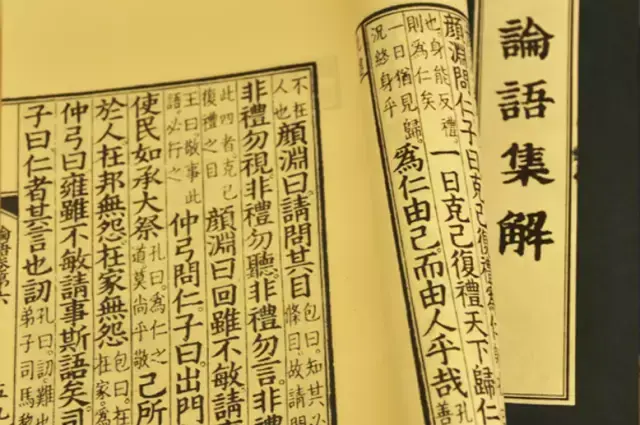 論語集解
顏淵問仁子曰克己復禮
也身能反禮
則為仁矣
一日克己復禮天下歸仁
一日猶見歸
況終身乎
為仁由己而由人乎哉
孔
善
不在
人也
顏淵曰請問其目
包曰知其必
條目故請
非禮勿視非禮勿聽非禮勿言非禮
此四者克己
復禮之目
顏淵曰回雖不敏請
王曰敬事此
語必行之
仲弓問仁子曰出門
使民如承大祭
孔曰為仁之
道莫尚乎敬
己所
於人在邦無怨在家無怨
包曰在
在家為
仲弓曰雍雖不敏請事斯語矣司
子曰仁者其言也訒
孔曰訒難也
弟子司馬
論語卷第六
五